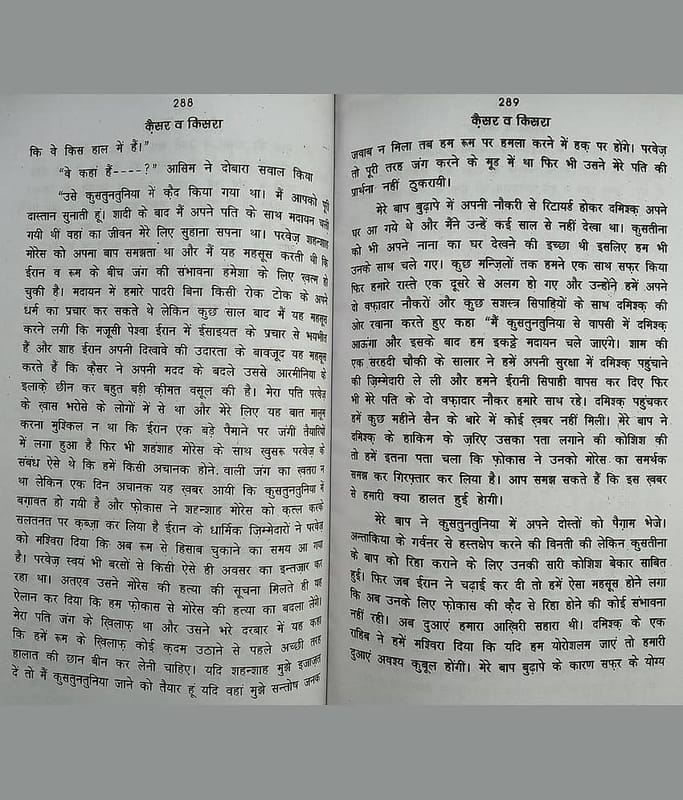 288
कै़सर व किसरा
कि वे किस हाल में हैं।"
"वे कहां हैं----?" आसिम ने दोबारा सवाल किया
"उसे कुसतुनतुनिया में कै़द किया गया था। मैं आपको पूरी
दास्तान सुनाती हूं। शादी के बाद मैं अपने पति के साथ मदायन चली
गयी थीं वहां का जीवन मेरे लिए सुहाना सपना था। परवेज़ शहनशाह
मोरेस को अपना बाप समझता था और मैं यह महसूस करती थी कि
ईरान व रूम के बीच जंग की संभावना हमेशा के लिए ख़त्म हो
चुकी है। मदायन में हमारे पादरी बिना किसी रोक टोक के अपने
धर्म का प्रचार कर सकते थे लेकिन कुछ साल बाद मैं यह महसूस
करने लगी कि मजूसी पेश्वा ईरान में ईसाइयत के प्रचार से भयभीत
हैं और शाह ईरान अपनी दिखावे की उदारता के बावजूद यह महसूस
करते हैं कि कै़सर ने अपनी मदद के बदले उससे आरमीनिया के
इलाक़े छीन कर बहुत बड़ी क़ीमत वसूल की है। मेरा पति परवेज़
के ख़ास भरोसे के लोगों में से था और मेरे लिए यह बात मालूम
करना मुश्किल न था कि ईरान एक बड़े पैमाने पर जंगी तैयारियों
में लगा हुआ है फिर भी शहंशाह मोरेस के साथ खुसरू परवेज़ के
संबंध ऐसे थे कि हमें किसी अचानक होने वाली जंग का ख़तरा न
था लेकिन एक दिन अचानक यह ख़बर आयी कि कुसतुनतुनिया में
बग़ावत हो गयी है और फोकास ने शहन्शाह मोरेस को क़त्ल करके
सलतनत पर क़ब्ज़ा कर लिया है ईरान के धार्मिक ज़िम्मेदारों ने परवेज़
को मश्विरा दिया कि अब रूम से हिसाब चुकाने का समय आ गया
है। परवेज़ स्वयं भी बरसों से किसी ऐसे ही अवसर का इन्तज़ार कर
रहा था। अतएव उसने मोरेस की हत्या की सूचना मिलते ही यह
ऐलान कर दिया कि हम फ़ोकास से मोरेस की हत्या का बदला लेंगे।
मेरा पति जंग के ख़िलाफ़ था और उसने भरे दरबार में यह कहा
कि हमें रूम के ख़िलाफ़ कोई क़दम उठाने से पहले अच्छी तरह
हालात की छान बीन कर लेनी चाहिए। यदि शहन्शाह मुझे इजाज़त
दें तो मैं कुसतुनतुनिया जाने को तैयार हूं यदि वहां मुझे सन्तोष जनक
289
कै़सर व किसरा
जवाब न मिला तब हम रूम पर हमला करने में हक़ पर होंगे। परवेज़
तो पूरी तरह जंग करने के मूड में था फिर भी उसने मेरे पति की
प्रार्थना नहीं ठुकरायी।
मेरे बाप बुढ़ापे में अपनी नौकरी से रिटायर्ड होकर दमिश्क़ अपने
घर आ गये थे और मैंने उन्हें कई साल से नहीं देखा था। कुसतीना
को भी अपने नाना का घर देखने की इच्छा थी इसलिए हम भी
उनके साथ चले गए। कुछ मन्ज़िलों तक हमने एक साथ सफ़र किया
फिर हमारे रास्ते एक दूसरे से अलग हो गए और उन्होंने हमें अपने
दो वफ़ादार नौकरों और कुछ सशस्त्र सिपाहियों के साथ दमिश्क़ की
ओर रवाना करते हुए कहा "मैं कुसतुनतुनिया से वापसी में दमिश्क़
आऊंगा और इसके बाद हम इकट्ठे मदायन चले जाएंगे। शाम की
एक सरहदी चौकी के सालार ने हमें अपनी सुरक्षा में दमिश्क़ पहुंचाने
की ज़िम्मेदारी ले ली और हमने ईरानी सिपाही वापस कर दिए फिर
भी मेरे पति के दो वफ़ादार नौकर हमारे साथ रहे। दमिश्क़ पहुंचकर
हमें कुछ महीने सैन के बारे में कोई ख़बर नहीं मिली। मेरे बाप ने
दमिश्क़ के हाकिम के ज़रिए उसका पता लगाने की कोशिश की
तो हमें इतना पता चला कि फ़ोकास ने उनको मोरेस का समर्थक
समझ कर गिरफ़्तार कर लिया है। आप समझ सकते हैं कि इस ख़बर
से हमारी क्या हालत हुई हेागी।
मेरे बाप ने कुसतुनतुनिया में अपने दोस्तों को पैग़ाम भेजे।
अन्ताकिया के गर्वनर से हस्तक्षेप करने की विनती की लेकिन कुसतीना
के बाप को रिहा कराने के लिए उनकी सारी कोशिश बेकार साबित
हुई। फिर जब ईरान ने चढ़ाई कर दी तो हमें ऐसा महसूस होने लगा
कि अब उनके लिए फ़ोकास की क़ैद से रिहा होने की कोई संभावना
नहीं रही। अब दुआएं हमारा आख़िरी सहारा थी। दमिश्क़ के एक
राहिब ने हमें मश्विरा दिया कि यदि हम योरोशलम जाएं तो हमारी
दुआएं अवश्य कुबूल होगी। मेरे बाप बुढ़ापे के कारण सफ़र के योग्य